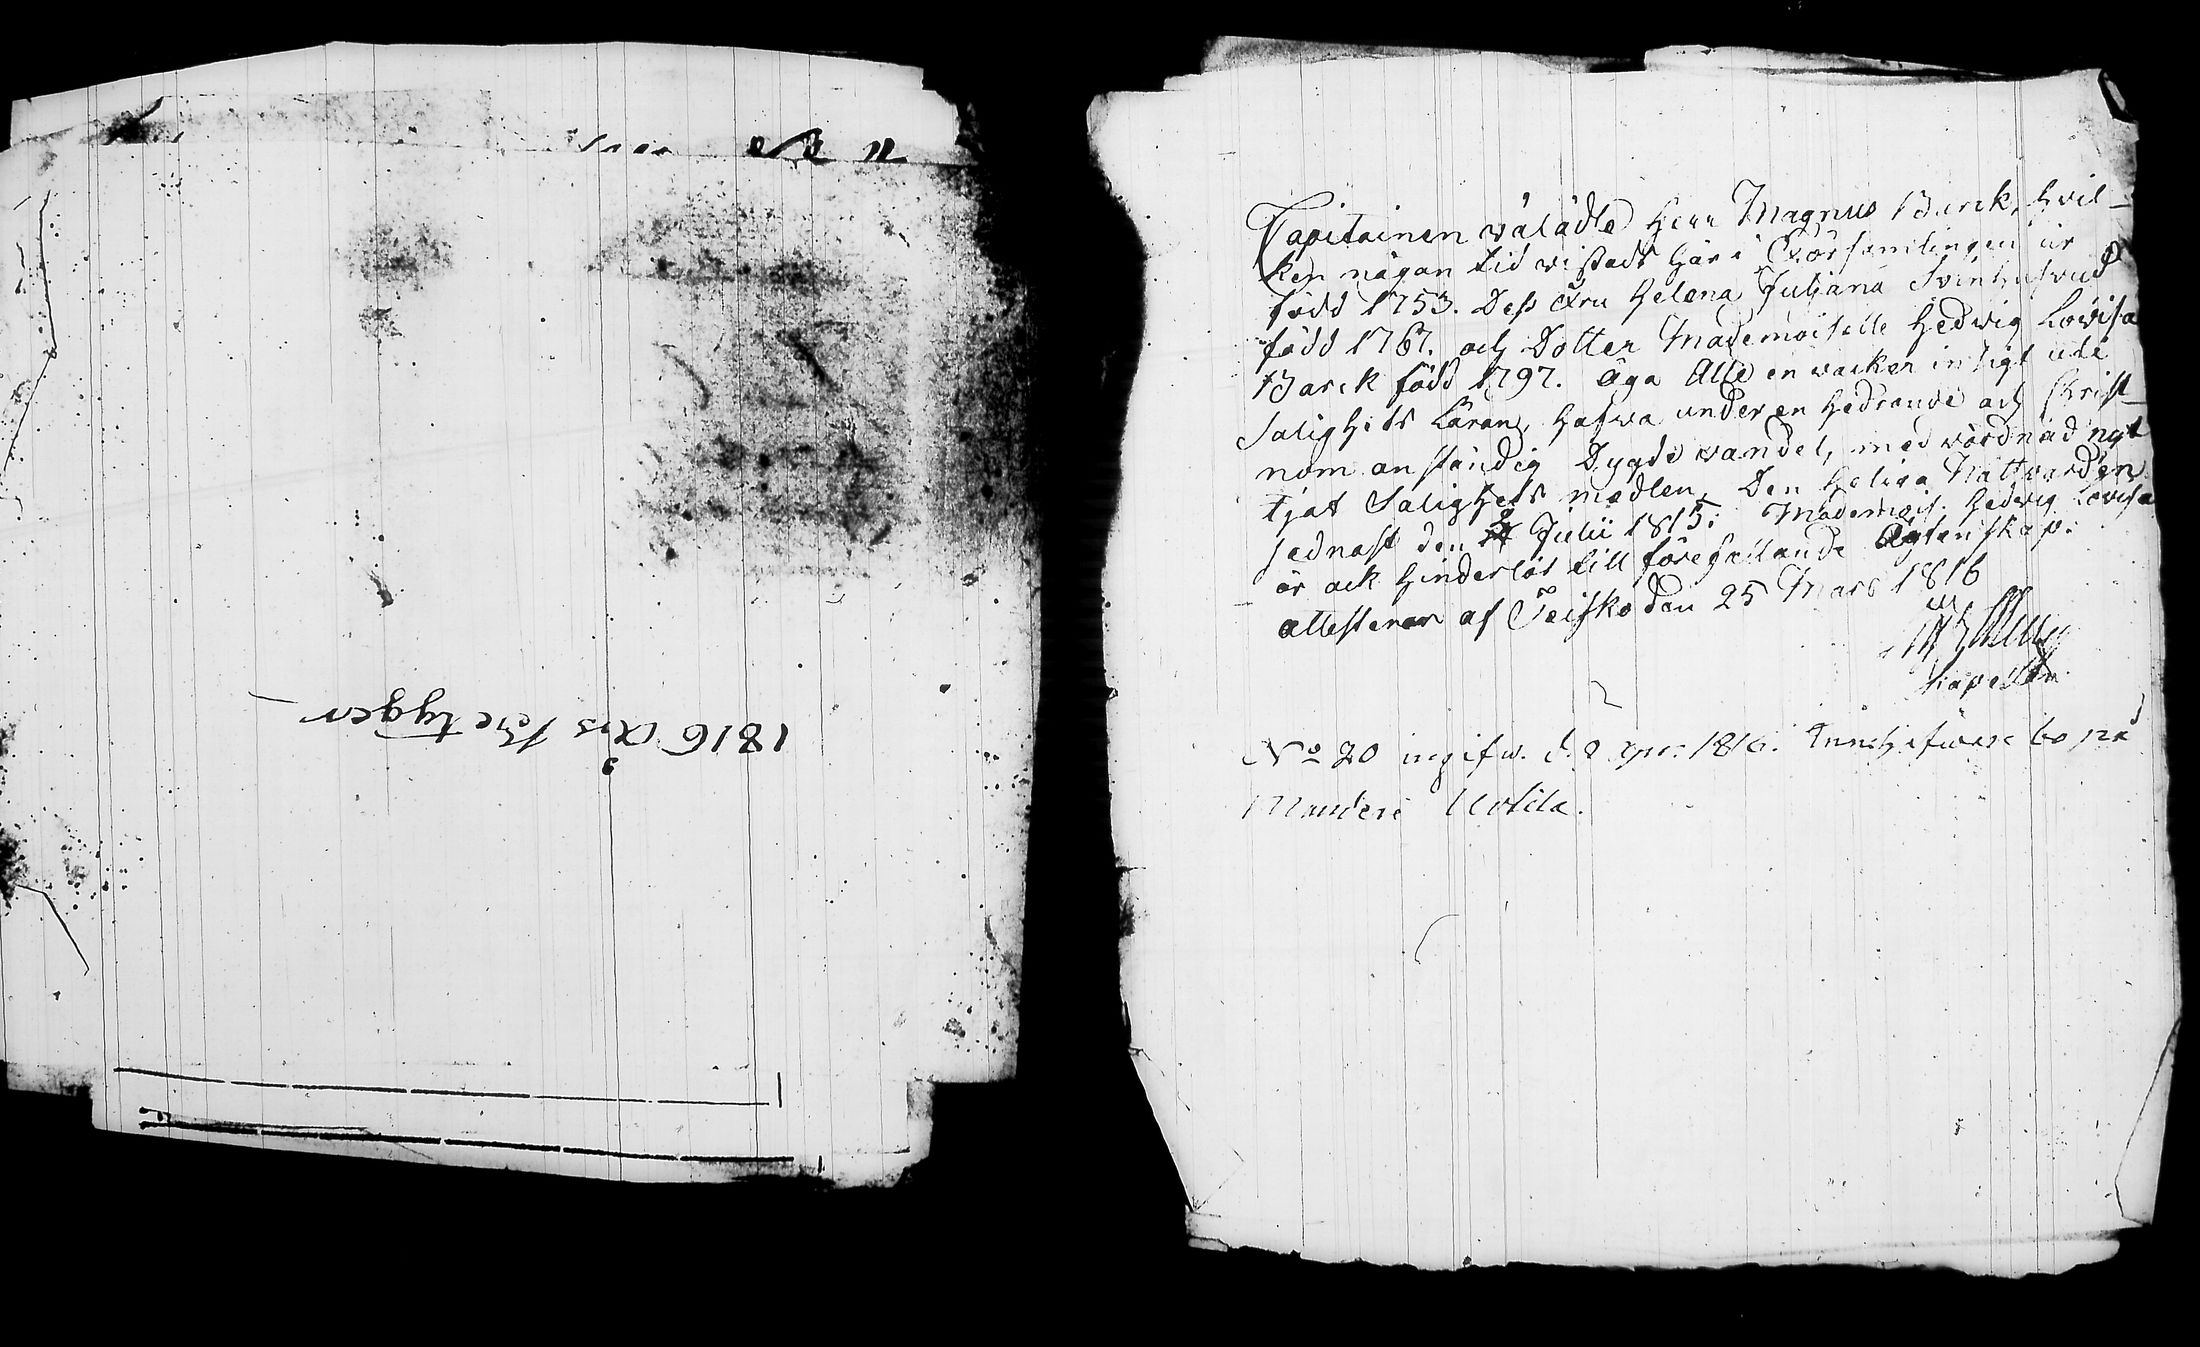 1816 Års Bretyger
Capitainen välädle Herr Magnus Barck, hvil-
ken någon tid vistads här i Församlingen är
född 1753. Dess Fru Helena Juliana Svinhufvud
född 1767. och Dotter Mademoiselle Hedvig Lovisa
Barck född 1797. Äga Alle en vacker insigt uti
Salighets Läran, hafva under en hedrande och Christ-
nom anständig Dygde vandel, med vördnad nyt-
tjat Salighets medlen, Den Heliga Nattvarden
sednast den Julii 1815. Mademois. Hedvig Lovisa
är ock hinderlös till förefallande Ägtenskap.
attesterar af Teisko den 25 Mars 1816
Kapellan
No 20 ingifw. d. 2 Apr. 1816. Innehafware bo på